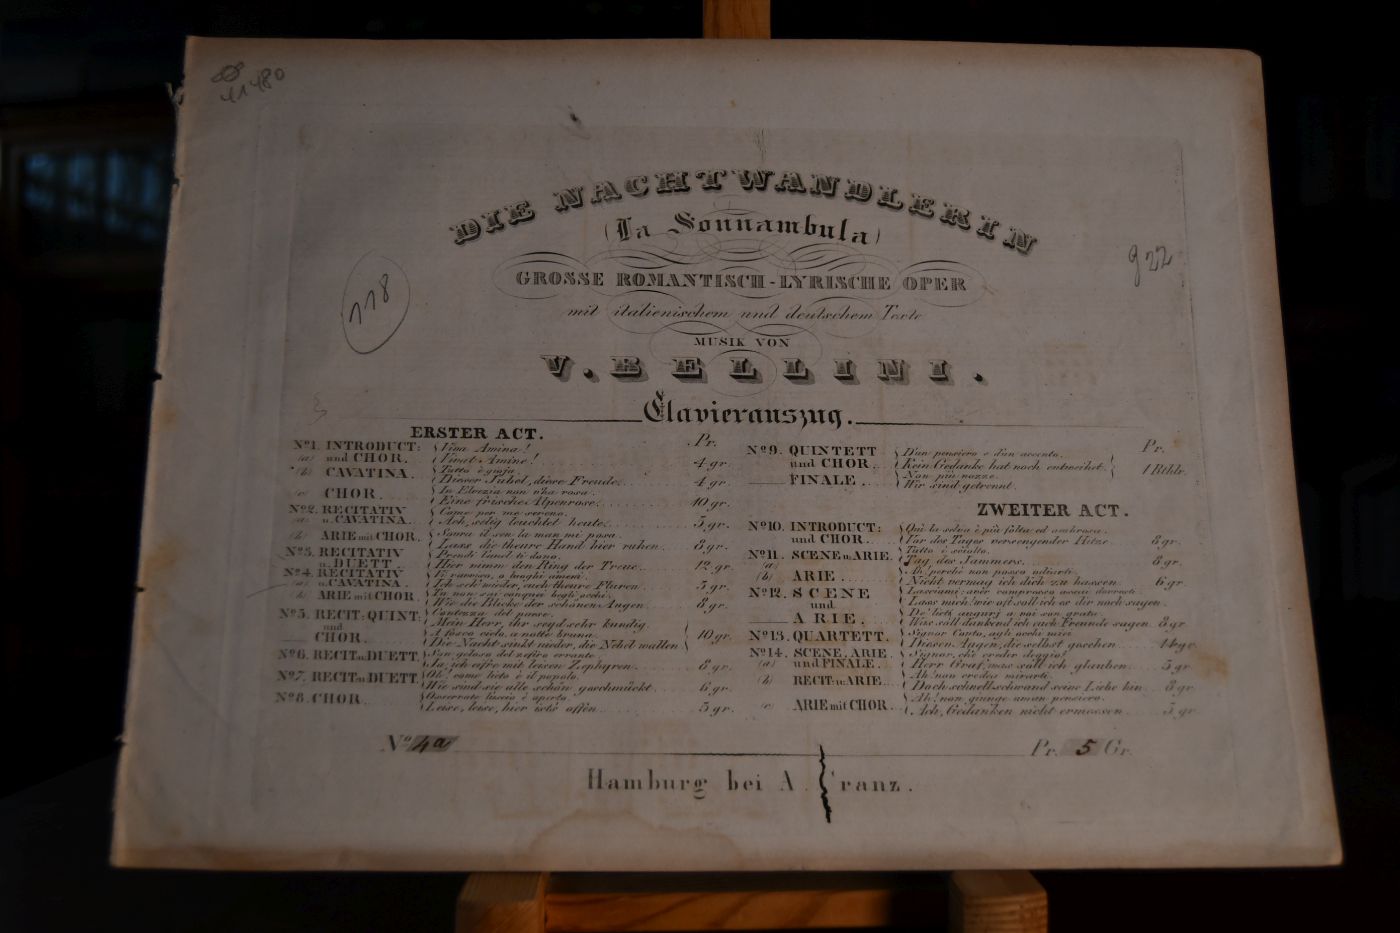 41480
DIE NACHTWANDLERIN
(La Sonnambula)
118
922
GROSSE ROMANTISCH-LYRISCHE OPER
mit italienischem und deutschem Texte
MUSIK VON
V. BELLINI.
Clavierauszug.
ERSTER ACT.
Pr.
No 1. INTRODUCT:
(a) und CHOR.
Viva Amina!
Vivat Amine! 4 gr.
(b) CAVATINA.
Tutto è gioja
Dieser Jubel, diese Freude 4 gr.
(c) CHOR.
In Elvezia non v'ha rosa
Eine frische Alpenrose 10 gr.
No 2. RECITATIV
(a) u. CAVATINA.
Come per me sereno
Ach, selig leuchtet heute 5 gr.
(b) ARIE mit CHOR.
Sovra il sen la man mi posa
Lass die theure Hand hier ruhen 8 gr.
No 3. RECITATIV
u. DUETT.
Prendi l'anel ti dono
Hier nimm den Ring der Treue 12 gr.
No 4. RECITATIV
(a) u. CAVATINA.
Vi ravviso, o luoghi ameni
Ich seh' wieder, euch theure Fluren 5 gr.
(b) ARIE mit CHOR.
Tu non sai con quei begli occhi
Wie die Blicke der schönen Augen 8 gr.
No 5. RECIT: QUINT:
und
CHOR.
Contezza del paese
Mein Herr, ihr seyd sehr kundig
A fosco cielo, a notte bruna
Die Nacht sinkt nieder, die Nebel wallen 10 gr.
No 6. RECIT u. DUETT.
Son geloso del zefiro errante
Ja, ich eifre mit leisen Zephyren 8 gr.
No 7. RECIT u. DUETT.
Oh! come lieto è il popolo
Wie sind sie alle schön geschmückt 6 gr.
No 8. CHOR.
Osservate l'uscio è aperto
Leise, leise, hier ists offen 5 gr.
Pr.
No 9. QUINTETT
und CHOR.
D'un pensiero e d'un accento
Kein Gedanke hat noch entweihet
FINALE.
Non più nozze
Wir sind getrennt 1 Rthlr.
ZWEITER ACT.
No 10. INTRODUCT:
und CHOR.
Qui la selva è più folta ed ombrosa
Vor des Tages versengender Hitze 8 gr.
No 11. SCENE u. ARIE.
(a)
Tutto è sciolto
Tag des Jammers 8 gr.
(b) ARIE.
Ah! perchè non posso odiarti
Nicht vermag ich dich zu hassen 6 gr.
No 12. SCENE
und
ARIE.
Lass mich, wie oft soll ich es dir noch sagen
De' lieti auguri a voi son grata
Wie soll dankend ich euch Freunde sagen 8 gr.
No 13. QUARTETT.
Signor Conte, agli occhi miei
Diesen Augen, die selbst gesehen 14 gr.
No 14. SCENE, ARIE.
(a) und FINALE.
Signor, che creder deggio?
Herr Graf, was soll ich glauben 5 gr.
(b) RECIT: u. ARIE.
Ah! non credea mirarti
Doch schnell schwand seine Liebe hin 8 gr.
(c) ARIE mit CHOR.
Ah! non giunge uman pensiero
Ach, Gedanken nicht ermessen 5 gr.
No 4a
Pr. 5 Gr.
Hamburg bei A. Cranz.